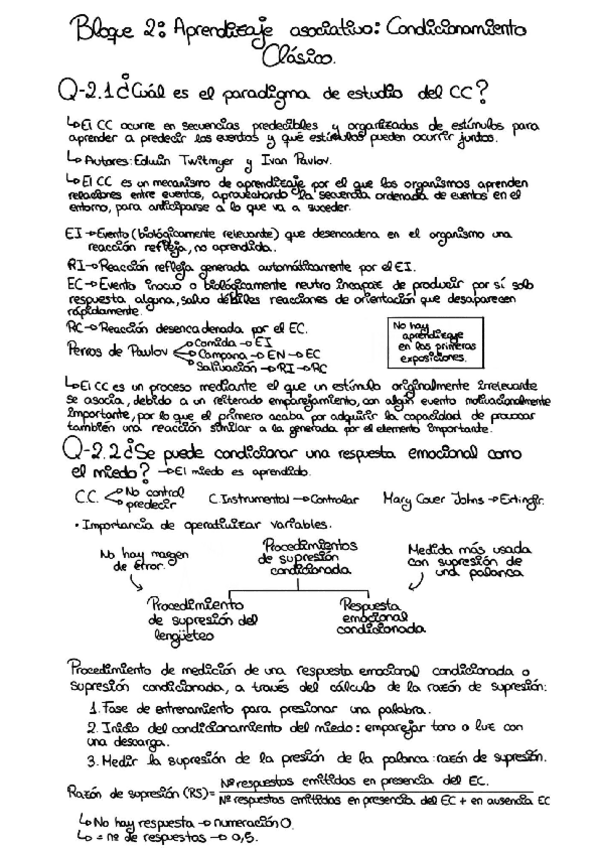 Bloque 2: Aprendizaje asociativo: Condicionamiento
Clásico.
Q-2.1 ¿Cuál es el paradigma de estudio del CC?
↳El CC ocurre en secuencias predecibles y organizadas de estímulos para
aprender a predecir los eventos y qué estímulos pueden ocurrir juntos.
↳Autores: Edwin Twitmyer y Ivan Pavlov.
↳El CC es un mecanismo de aprendizaje por el que los organismos aprenden
relaciones entre eventos, aprovechando la secuencia ordenada de eventos en el
entorno, para anticiparse a lo que va a suceder.
EI→Evento (biológicamente relevante) que desencadena en el organismo una
reacción refleja, no aprendida.
RI→Reacción refleja generada automáticamente por el EI.
EC→Evento inocuo o biológicamente neutro incapaz de producir por sí solo
respuesta alguna, salvo débiles reacciones de orientación que desaparecen
rápidamente.
RC→Reacción desencadenada por el EC.
Perros de Pavlov
→Comida→EI
→Campana→EN→EC
→Salivación→RI→RC
No hay
aprendizaje
en las primeras
exposiciones.
↳El CC es un proceso mediante el que un estímulo originalmente irrelevante
se asocia, debido a un reiterado emparejamiento, con algún evento motivacionalmente
importante, por lo que el primero acaba por adquirir la capacidad de provocar
también una reacción similar a la generada por el elemento importante.
Q-2.2 ¿Se puede condicionar una respuesta emocional como
el miedo? →El miedo es aprendido.
C.C.
→No control
predecir
C.Instrumental→Controlar
Mary Cover Johns→Extingir.
• Importancia de operativizar variables.
No hay margen
de error.
Procedimientos
de supresión
condicionada
Medida más usada
con supresión de
una palanca
Procedimiento
de supresión del
lengüeteo
Respuesta
emocional
condicionada.
Procedimiento de medición de una respuesta emocional condicionada o
supresión condicionada, a través del cálculo de la razón de supresión:
1. Fase de entrenamiento para presionar una palabra.
2. Inicio del condicionamiento del miedo: emparejar tono o luz con
una descarga.
3. Medir la supresión de la presión de la palanca: razón de supresión.
Razón de supresión (RS)=
Nº respuestas emitidas en presencia del EC.
Nº respuestas emitidas en presencia del EC + en ausencia EC
↳No hay respuesta→numeración 0.
↳= nº de respuestas→0,5.